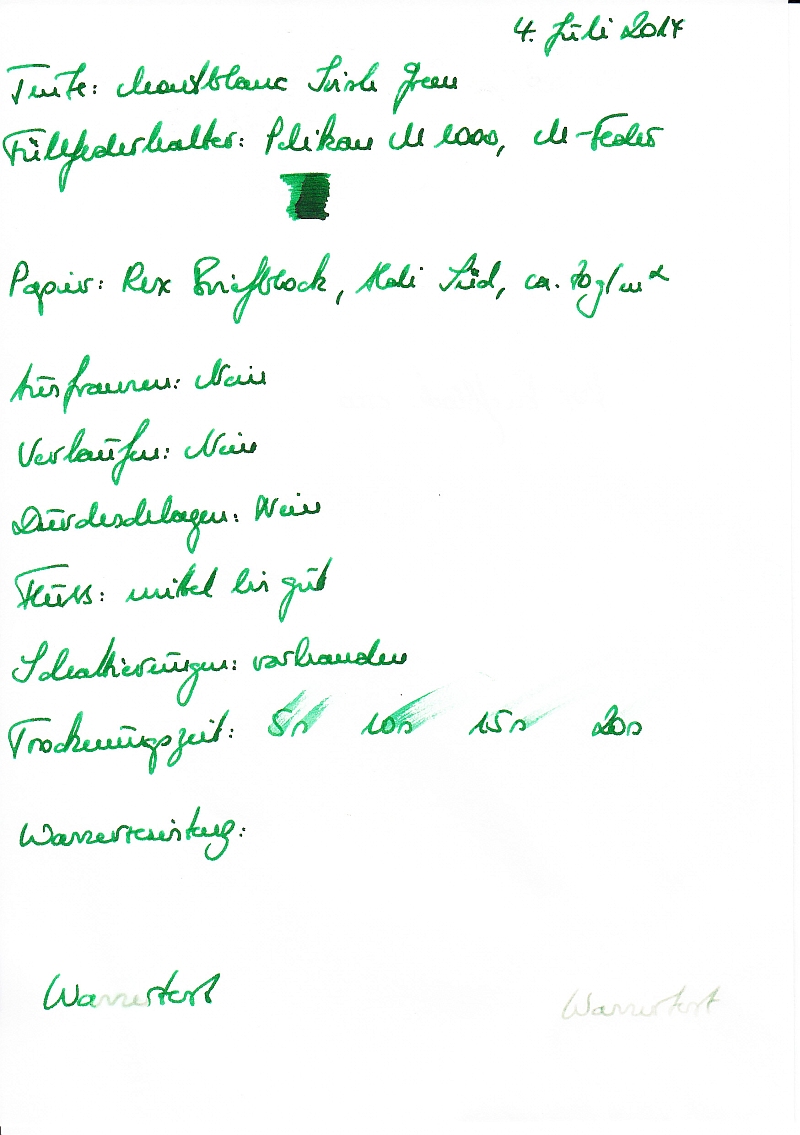 4. Juli 2014
Tinte: Montblanc Irish Green
Füllfederhalter: Pelikan M 1000, M-Feder
Papier: Rex Briefblock, Aldi Süd, ca. 70 g/m²
Ausfransen: Nein
Verlaufen: Nein
Durchschlagen: Nein
Fluss: mittel bis gut
Schattierungen: vorhanden
Trocknungszeit: 5s 10s 15s 20s
Wasserfestigkeit:
Wassertest Wassertest